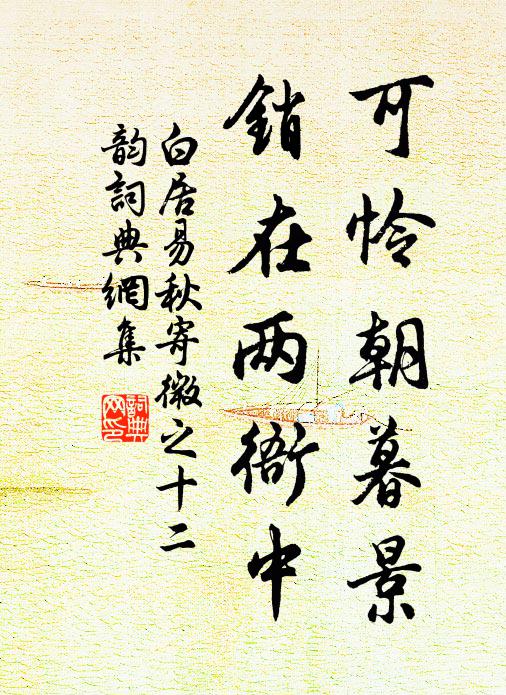 可怜朝暮景
銷在两衙中
白居易秋寄微之十二
韵詞典網集
詞典
网印